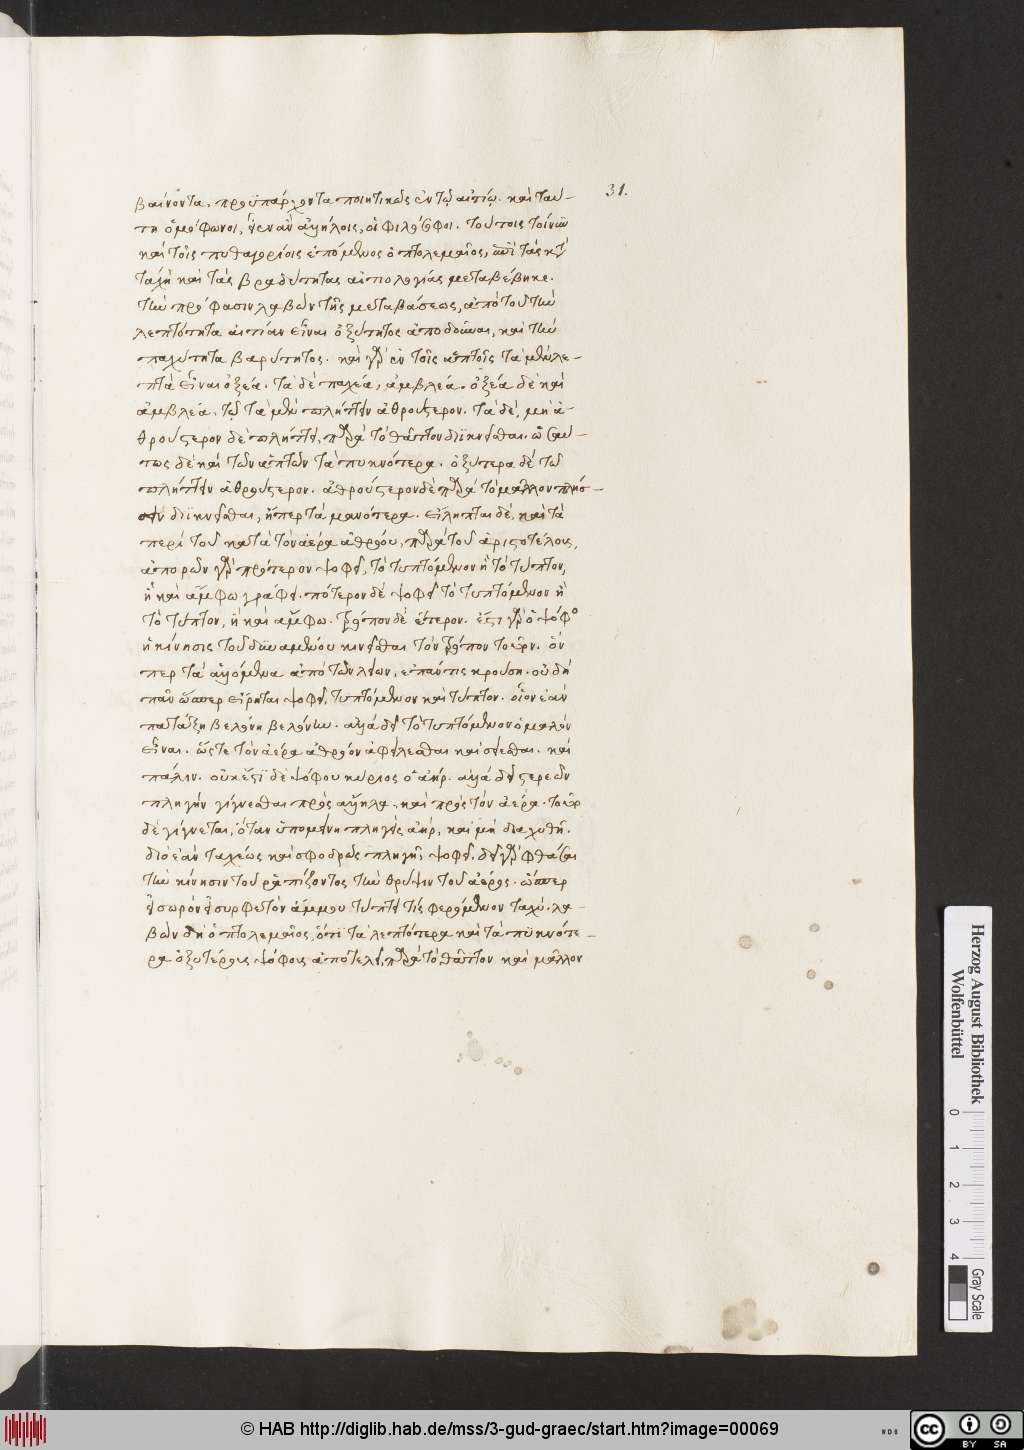 31.
βαίνοντα, προϋπάρχοντα ποιητικῶς ἐν τῷ αἰτίῳ. καὶ ταύ-
τῃ ὁμόφωνοι, ἀλλήλοις, οἱ φιλόσοφοι. τούτοις τοίνυν
καὶ τοῖς πυθαγορείοις ἑπόμενος ὁ πτολεμαῖος, ἐπὶ τὰς κατὰ
τάχη καὶ τὰς βραδύτητας αἰτιολογίας μεταβέβηκε.
τὴν πρόφασιν λαβὼν τῆς μεταβάσεως, ἀπὸ τοῦ τὴν
λεπτότητα αἰτίαν εἶναι ὀξύτητος ἀποδοῦναι, καὶ τὴν
παχύτητα βαρύτητος. καὶ γὰρ ἐν τοῖς ἁπτοῖς τὰ μὲν λε-
πτὰ εἶναι ὀξέα. τὰ δὲ παχέα, ἀμβλέα. ὀξέα δὲ καὶ
ἀμβλέα, τῷ τὰ μὲν πλήττειν ἀθρούστερον. τὰ δὲ, μὴ ἀ-
θρούστερον δὲ πλήττει, παρὰ τὸ θᾶττον διϊκνεῖσθαι. ὡσαύ-
τως δὲ καὶ τῶν ἁπτῶν τὰ πυκνότερα. ὀξύτερα δὲ τῷ
πλήττειν ἀθρούστερον. ἀθρούστερον δὲ παρὰ τὸ μᾶλλον πλήσ-
σειν διϊκνεῖσθαι, ἤπερ τὰ μανότερα. εἴληπται δὲ, καὶ τὰ
περὶ τοῦ κατὰ τὸν ἀέρα ἀθρόου, παρὰ τοῦ ἀριστοτέλους,
ἀπορῶν γὰρ πρότερον ψοφεῖ, τὸ τυπτόμενον ἢ τὸ τύπτον,
ἢ καὶ ἄμφω γράφει. πότερον δὲ ψοφεῖ τὸ τυπτόμενον ἢ
τὸ τύπτον, ἢ καὶ ἄμφω. τρόπον δὲ ἕτερον. ἔστι γὰρ ὁ ψόφος
ἡ κίνησις τοῦ δυναμένου κινεῖσθαι τὸν τρόπον τοῦτον. ὅν
περ τὰ ἁλλόμενα ἀπὸ τῶν λείων, ἐπάν τις κρούσῃ. οὐ δὴ
πᾶν ὥσπερ εἴρηται ψοφεῖ, τυπτόμενον καὶ τύπτον. οἷον ἐὰν
πατάξῃ βελόνη βελόνην. ἀλλὰ δεῖ τὸ τυπτόμενον ὁμαλὸν
εἶναι. ὥστε τὸν ἀέρα ἀθρόον ἀφάλλεσθαι καὶ σείεσθαι. καὶ
πάλιν. οὐκ ἔστι δὲ ψόφου κύριος ὁ ἀήρ. ἀλλὰ δεῖ στερεῶν
πληγὴν γίγνεσθαι πρὸς ἄλληλα, καὶ πρὸς τὸν ἀέρα. τοῦτο
δὲ γίγνεται, ὅταν ὑπομένῃ πληγεὶς ἀὴρ, καὶ μὴ διαχυθῇ.
διὸ ἐὰν ταχέως καὶ σφοδρῶς πληγῇ, ψοφεῖ. δεῖ γὰρ φθάσαι
τὴν κίνησιν τοῦ ῥαπίζοντος τὴν θρύψιν τοῦ ἀέρος. ὥσπερ
εἰ σωρὸν ἢ συρφετὸν ἄμμου τύπτει τίς φερόμενον ταχύ. λα-
βὼν δὴ ὁ πτολεμαῖος, ὅτι τὰ λεπτότερα καὶ τὰ πυκνότε-
ρα ὀξυτέρους ψόφους ἀποτελεῖ, παρὰ τὸ θᾶττον καὶ μᾶλλον
Herzog August Bibliothek
Wolfenbüttel
0 1 2 3 4
Gray Scale
© HAB http://diglib.hab.de/mss/3-gud-graec/start.htm?image=00069
cc BY SA